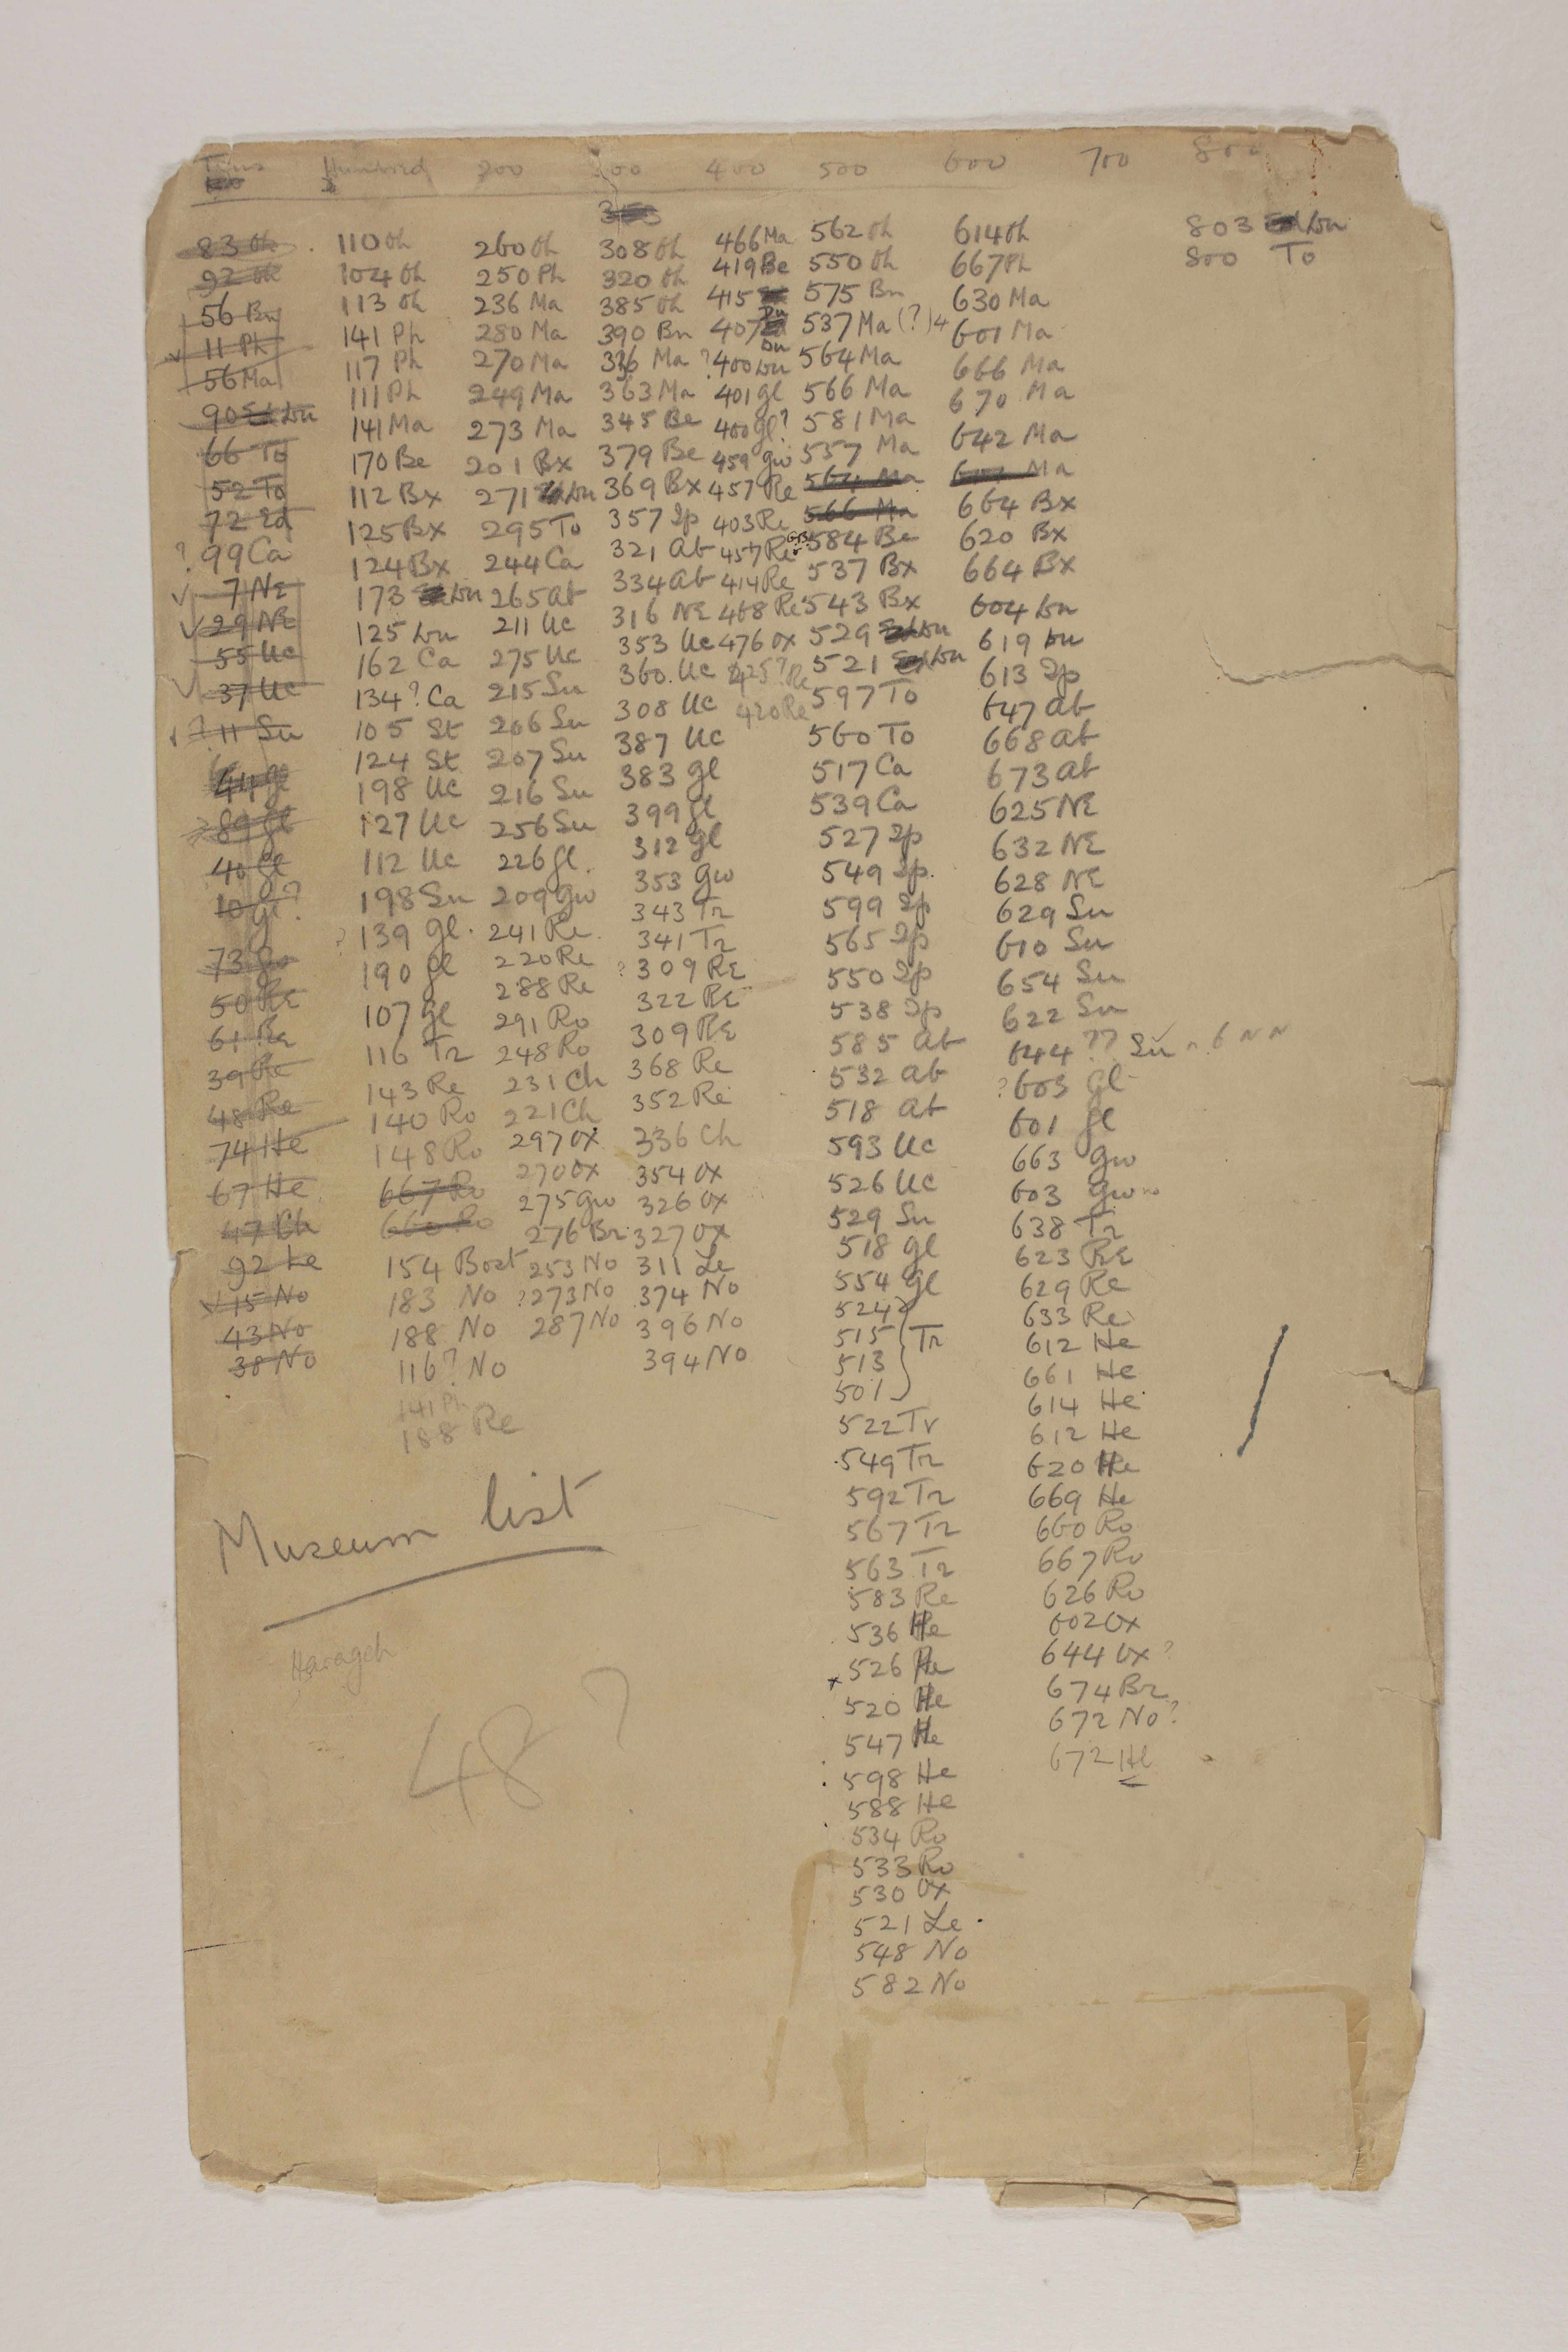 Tens Hundred 200 300 400 500 600 700 800
83 Oh 110 Oh 260 Oh 308 Oh 466 Ma 562 Oh 614 Oh 803 Du
92 Oh 104 Oh 250 Ph 320 Oh 419 Be 550 Oh 667 Ph 800 To
56 Bn 113 Oh 236 Ma 385 Oh 415 Du 575 Bn 630 Ma
11 Ph 141 Ph 280 Ma 390 Bn 407 Du 537 Ma (?) 4 601 Ma
56 Ma 117 Ph 270 Ma 336 Ma ? 400 Du 564 Ma 666 Ma
90 Du 111 Ph 249 Ma 363 Ma 401 Gl 566 Ma 670 Ma
66 To 141 Ma 273 Ma 345 Be 400 Gl? 581 Ma 642 Ma
52 To 170 Be 201 Bx 379 Be 459 Gw 557 Ma 601 Ma
72 Ed 112 Bx 271 Du 369 Bx 457 Re 564 Ma 664 Bx
? 99 Ca 125 Bx 295 To 357 Ip 403 Re 566 Ma 620 Bx
7 NE 124 Bx 244 Ca 321 Ab 457 Re 584 Be 664 Bx
29 NE 173 Du 265 Ab 334 Ab 414 Re 537 Bx 604 Du
55 Uc 125 Du 211 Uc 316 NE 408 Re 543 Bx 619 Du
37 Uc 162 Ca 275 Uc 353 Uc 476 Ox 529 Du 613 Ip
? 11 Su 134? Ca 215 Su 360 Uc 425? Re 521 Du 647 Ab
44 Gl 105 St 206 Su 308 Uc 420 Re 597 To 668 Ab
89 Gl 124 St 207 Su 387 Uc 560 To 673 Ab
40 Gl 198 Uc 216 Su 383 Gl 517 Ca 625 NE
10 Gl? 127 Uc 256 Su 399 Gl 539 Ca 632 NE
73 Gw 112 Uc 226 Gl. 312 Gl 527 Ip 628 NE
50 Re 198 Su 209 Gw 353 Gw 549 Ip. 629 Su
61 Re ? 139 Gl. 241 Re. 343 Tr 599 Ip 610 Su
39 Re 190 Gl 220 Re 341 Tr 565 Ip 654 Su
48 Re 107 Gl 288 Re ? 309 RE 550 Ip 622 Su
74 He 116 Tr 291 Ro 322 RE 538 Ip 644 ?? Su
67 He 143 Re 248 Ro 309 RE 585 Ab ? 603 Gl
47 Ch 140 Ro 231 Ch 368 Re 532 Ab 601 Gl
92 Le 148 Ro 221 Ch 352 Re 518 Ab 663 Gw
15 No 667 Ro 297 Ox 336 Ch 593 Uc 603 Gw
43 No 660 Ro 270 Ox 354 Ox 526 Uc 638 Tr
38 No 154 Bost 275 Gw 326 Ox 529 Su 623 RE
183 No 276 Br 327 Ox 518 Gl 629 Re
188 No 253 No 311 Le 554 Gl 633 Re
116? No ? 273 No 374 No 524 612 He
141 Ph 287 No 396 No 515 Tr 661 He
188 Re 394 No 513 614 He
501 612 He
522 Tr 620 He
549 Tr 669 He
592 Tr 660 Ro
567 Tr 667 Ro
563 Tr 626 Ro
583 Re 602 Ox
536 He 644 Ox ?
526 He 674 Br
520 He 672 No ?
547 He 672 He
598 He
588 He
534 Ro
533 Ro
530 Ox
521 Le
548 No
582 No
Museum list
Harageh
48 ?